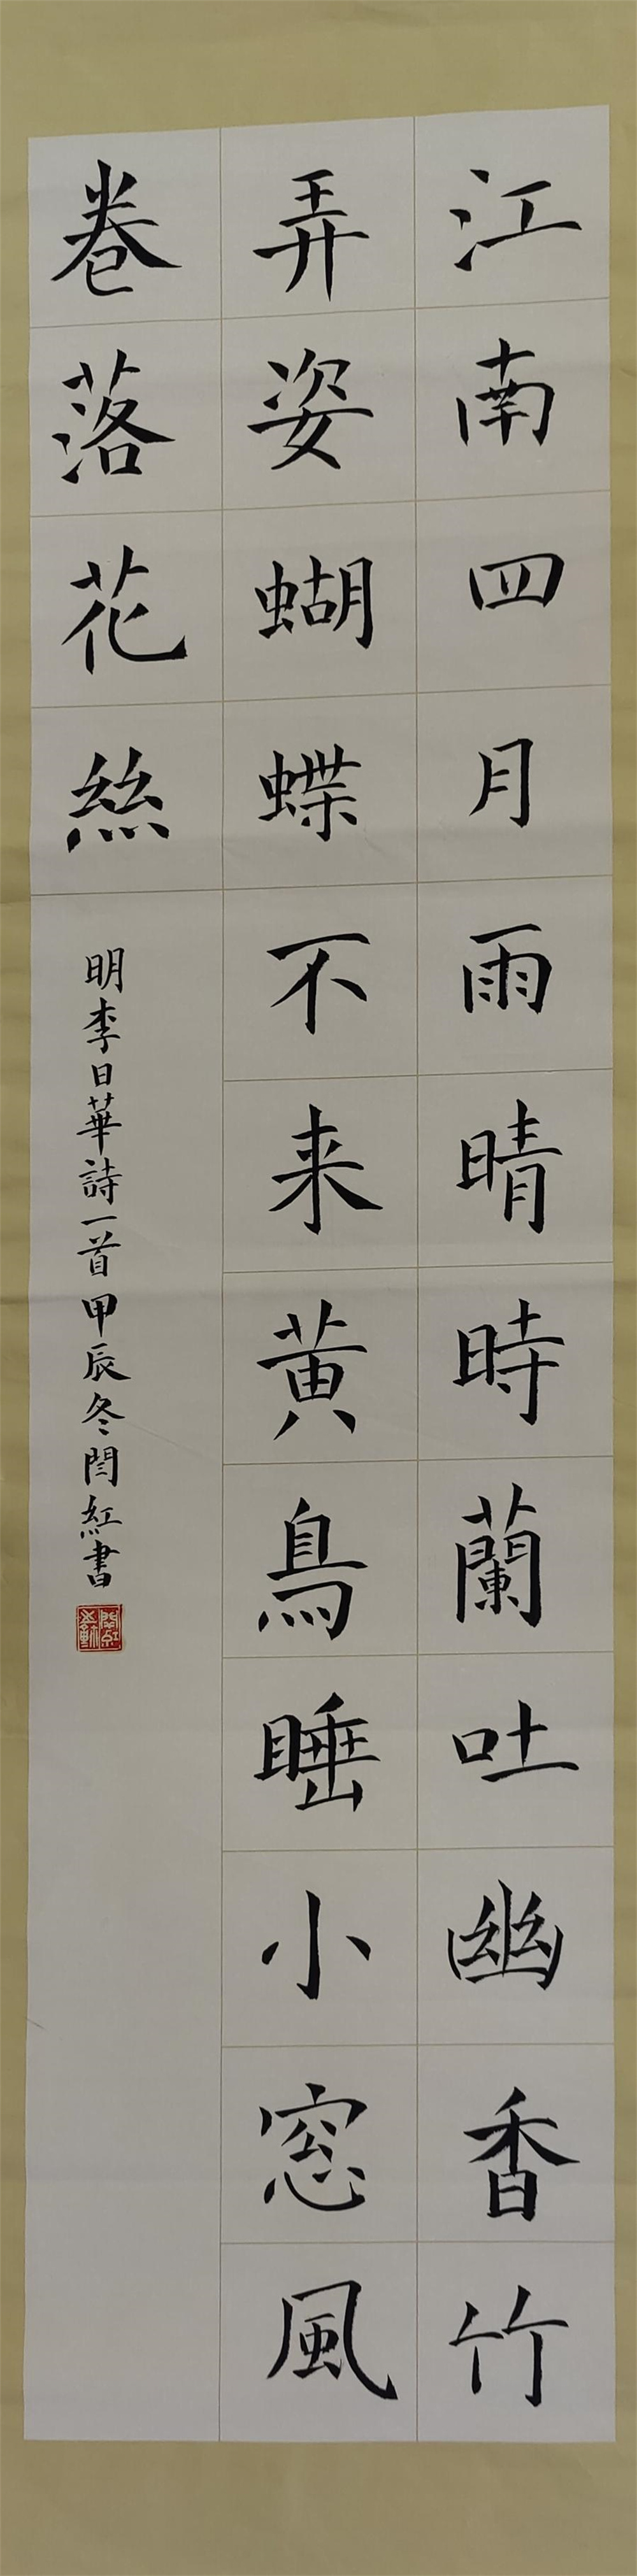 江南四月雨晴時蘭吐幽香竹
弄姿蝴蝶不来黄鳥睡小窓風
卷落花絲
明李日華詩一首甲辰冬閆紅書